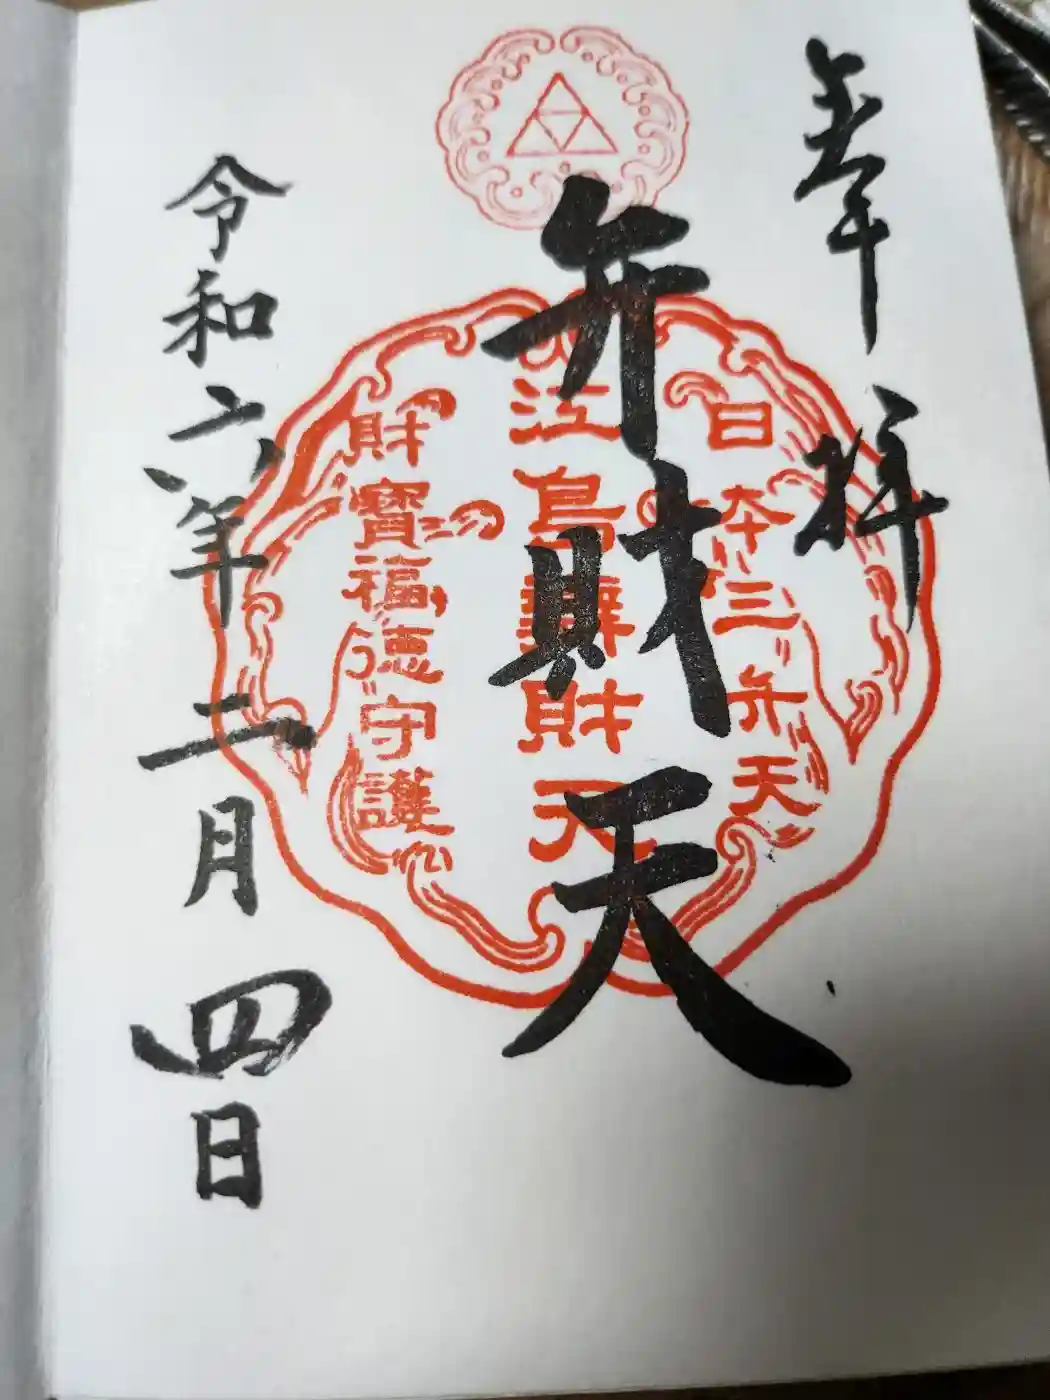 奉拝
弁財天
令和六年二月四日
日本三弁天
江島辨財天
財寶福徳守護